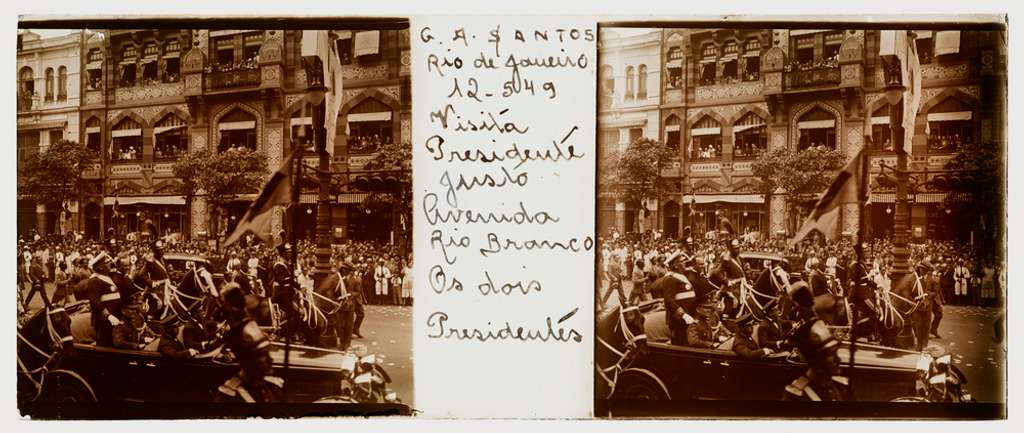 G. A. SANTOS
Rio de Janeiro
12-549
Visita
Presidente
Justo
Avenida
Rio Branco
Os dois
Presidentes